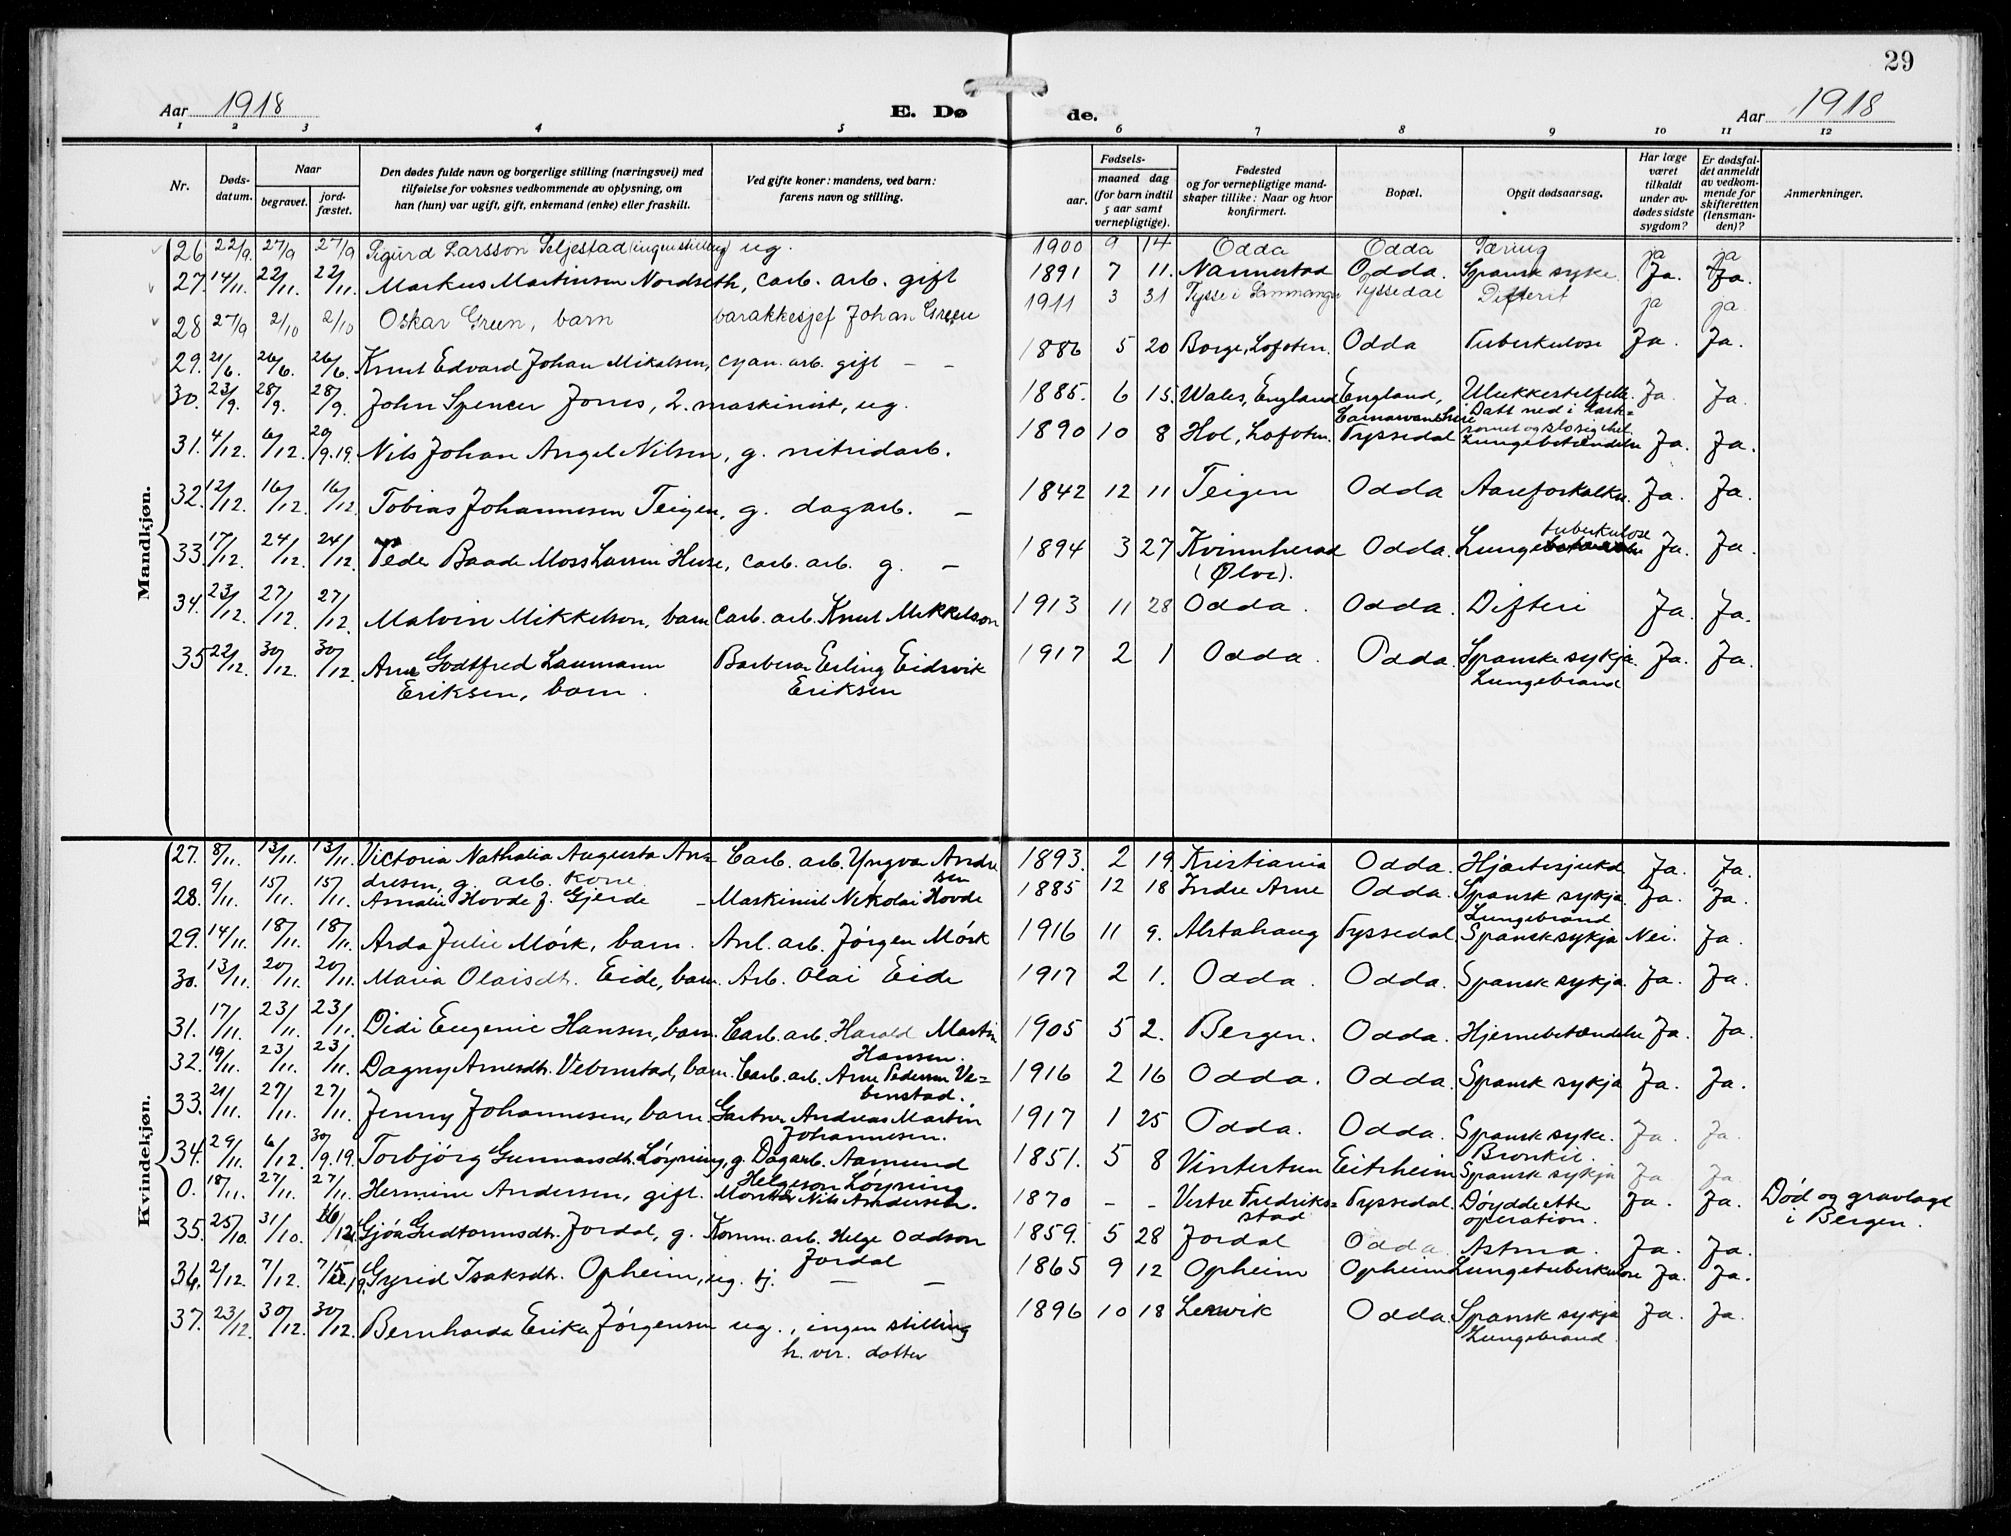 29
Aar 1918 E. Dø de. Aar 1918
1 2 3 4 5 6 7 8 9 10 11 12
Nr. Døds-datum. Naar begravet. jord-fæstet. Den dødes fulde navn og borgerlige stilling (næringsvei) med tilføielse for voksnes vedkommende av oplysning, om han (hun) var ugift, gift, enkemand (enke) eller fraskilt. Ved gifte koner: mandens, ved barn: farens navn og stilling. Fødsels- aar. maaned dag (for barn indtil 5 aar samt vernepligtige). Fødested og for vernepligtige mand-skaper tillike: Naar og hvor konfirmert. Bopæl. Opgit dødsaarsag. Har læge været tilkaldt under av-dødes sidste sygdom? Er dødsfal-det anmeldt av vedkom-mende for skifteretten (lensman-den)? Anmerkninger.
Mandkjøn.
26 22/9. 27/9 27/9 Sigurd Larsson Seljestad (ingen stilling) ug. 1900 9 14 Odda Odda Tæring ja ja
27. 14/11. 22/11. 22/11. Markus Martinsen Nordseth, carb. arb. gift 1891 7 11. Nannestad Odda. Spansk syke Ja. Ja.
28 27/9 2/10 2/10 Oskar Green, barn barakkesjef Johan Green 1911 3 31 Tysse i Samnanger Tyssedal Difterit ja ja
29. 21/6. 26/6. 26/6. Knut Edvard Johan Mikalsen, cyan. arb. gift — — 1886 5 20 Borge, Lofoten. Odda Tuberkulose Ja. Ja.
30. 23/9. 28/9. 28/9. John Spencer Jones, 2. maskinist, ug. 1885. 6 15. Wales, England England, Carnarvonshire Ulukkestilfelle. Datt ned i laste= romet og slo sig ihel Ja. Ja.
31. 4/12. 6/12. 29/9.19. Nils Johan Angel Nilsen, g. nitridarb. 1890 10 8 Hol, Lofoten. Tyssedal Lungebetændelse Ja. Ja.
32. 12/12. 16/12. 16/12. Tobias Johannesen Teigen, g. dagarb. — 1842 12 11 Teigen Odda Aareforkalkn. Ja. Ja.
33. 17/12. 24/12. 24/12. Peder Baade Moss Larsen Huse, carb. arb. g. — 1894 3 27 Kvinnherad Odda. Lunge tuberkulose Ja. Ja.
(Ølve).
34. 23/12. 27/12. 27/12. Malvin Mikkelson, barn Carb. arb. Knut Mikkelson 1913 11 28 Odda. Odda. Difteri Ja. Ja.
35 22/12. 30/12. 30/12. Arne Godtfred Laumann Barberar Erling Eidsvik 1917 2 1 Odda. Odda. Spanske sykja Ja. Ja.
Eriksen, barn. Eriksen Lungebrand
Kvindekjøn.
27. 8/11. 13/11. 13/11. Victoria Nathalia Augusta An= Carb. arb. Yngva Andre 1893. 2 19. Kristiania Odda. Hjartesjukd. Ja. Ja.
dresen, g. arb. kone sen
28. 9/11. 15/11. 15/11. Amalie Hovde f. Gjerde - Maskinist Nikolai Hovde 1885 12 18 Indre Arne Odda. Spansk sykja Ja. Ja.
Lungebrand
29. 14/11. 18/11. 18/11. Arda Julie Mörk, barn. Anl. arb. Jörgen Mörk 1916 11 9. Alstahaug Tyssedal Spansk sykja Nei. Ja.
30. 13/11. 20/11. 20/11. Maria Olaisdtr. Eide, barn. Arb. Olai Eide 1917 2 1. Odda. Odda. Spansk sykja Ja. Ja.
31. 17/11. 23/11. 23/11. Didi Eugenie Hansen, barn. Carb. arb. Harald Martin 1905 5 2. Bergen. Odda. Hjernebetændelse Ja. Ja.
Hansen.
32. 19/11. 23/11. 23/11. Dagny Arnesdtr. Vebenstad, barn. Carb. arb. Arne Pedersen Ve= 1916 2 16 Odda. Odda. Spansk sykja Ja. Ja.
benstad.
33. 21/11. 27/11. 27/11. Jenny Johannesen, barn. Gartner Andreas Martin 1917 1 25 Odda. Odda. Spansk syke. Ja. Ja.
Johannesen. Bronkit.
34. 29/11. 6/12. 30/9.19. Torbjörg Gunnarsdtr. Löyning, g. Dagarb. Aamund 1851. 5 8 Vintertun Eitrheim Spansk sykja Ja Ja
Helgeson Löyning
0. 18/11. 27/11. 27/11. Hermine Andersen, gift. Montör Nils Andersen. 1870 - - Vestre Fredriks= Tyssedal. Døydde etter Ja. Ja. Død og gravlagt
stad operation. i Bergen.
35. 25/10. 31/10. 16/12. Gjóa Gudtormsdtr. Jordal, g. Komm. arb. Helge Oddson 1859. 5 28 Jordal Odda. Astma. Ja. Ja.
Jordal
36. 2/12. 7/12. Gyrid Isaksdtr. Opheim, ug. tj. — — 1865 9 12 Opheim Opheim Lungetuberkulose Ja. Ja.
37. 23/12. 30/12. 30/12. Bernharda Erika Jørgensen ug., ingen stilling 1896 10 18 Lervik Odda. Spansk sykja Ja. Ja.
h. vir. datter Lungebrand.